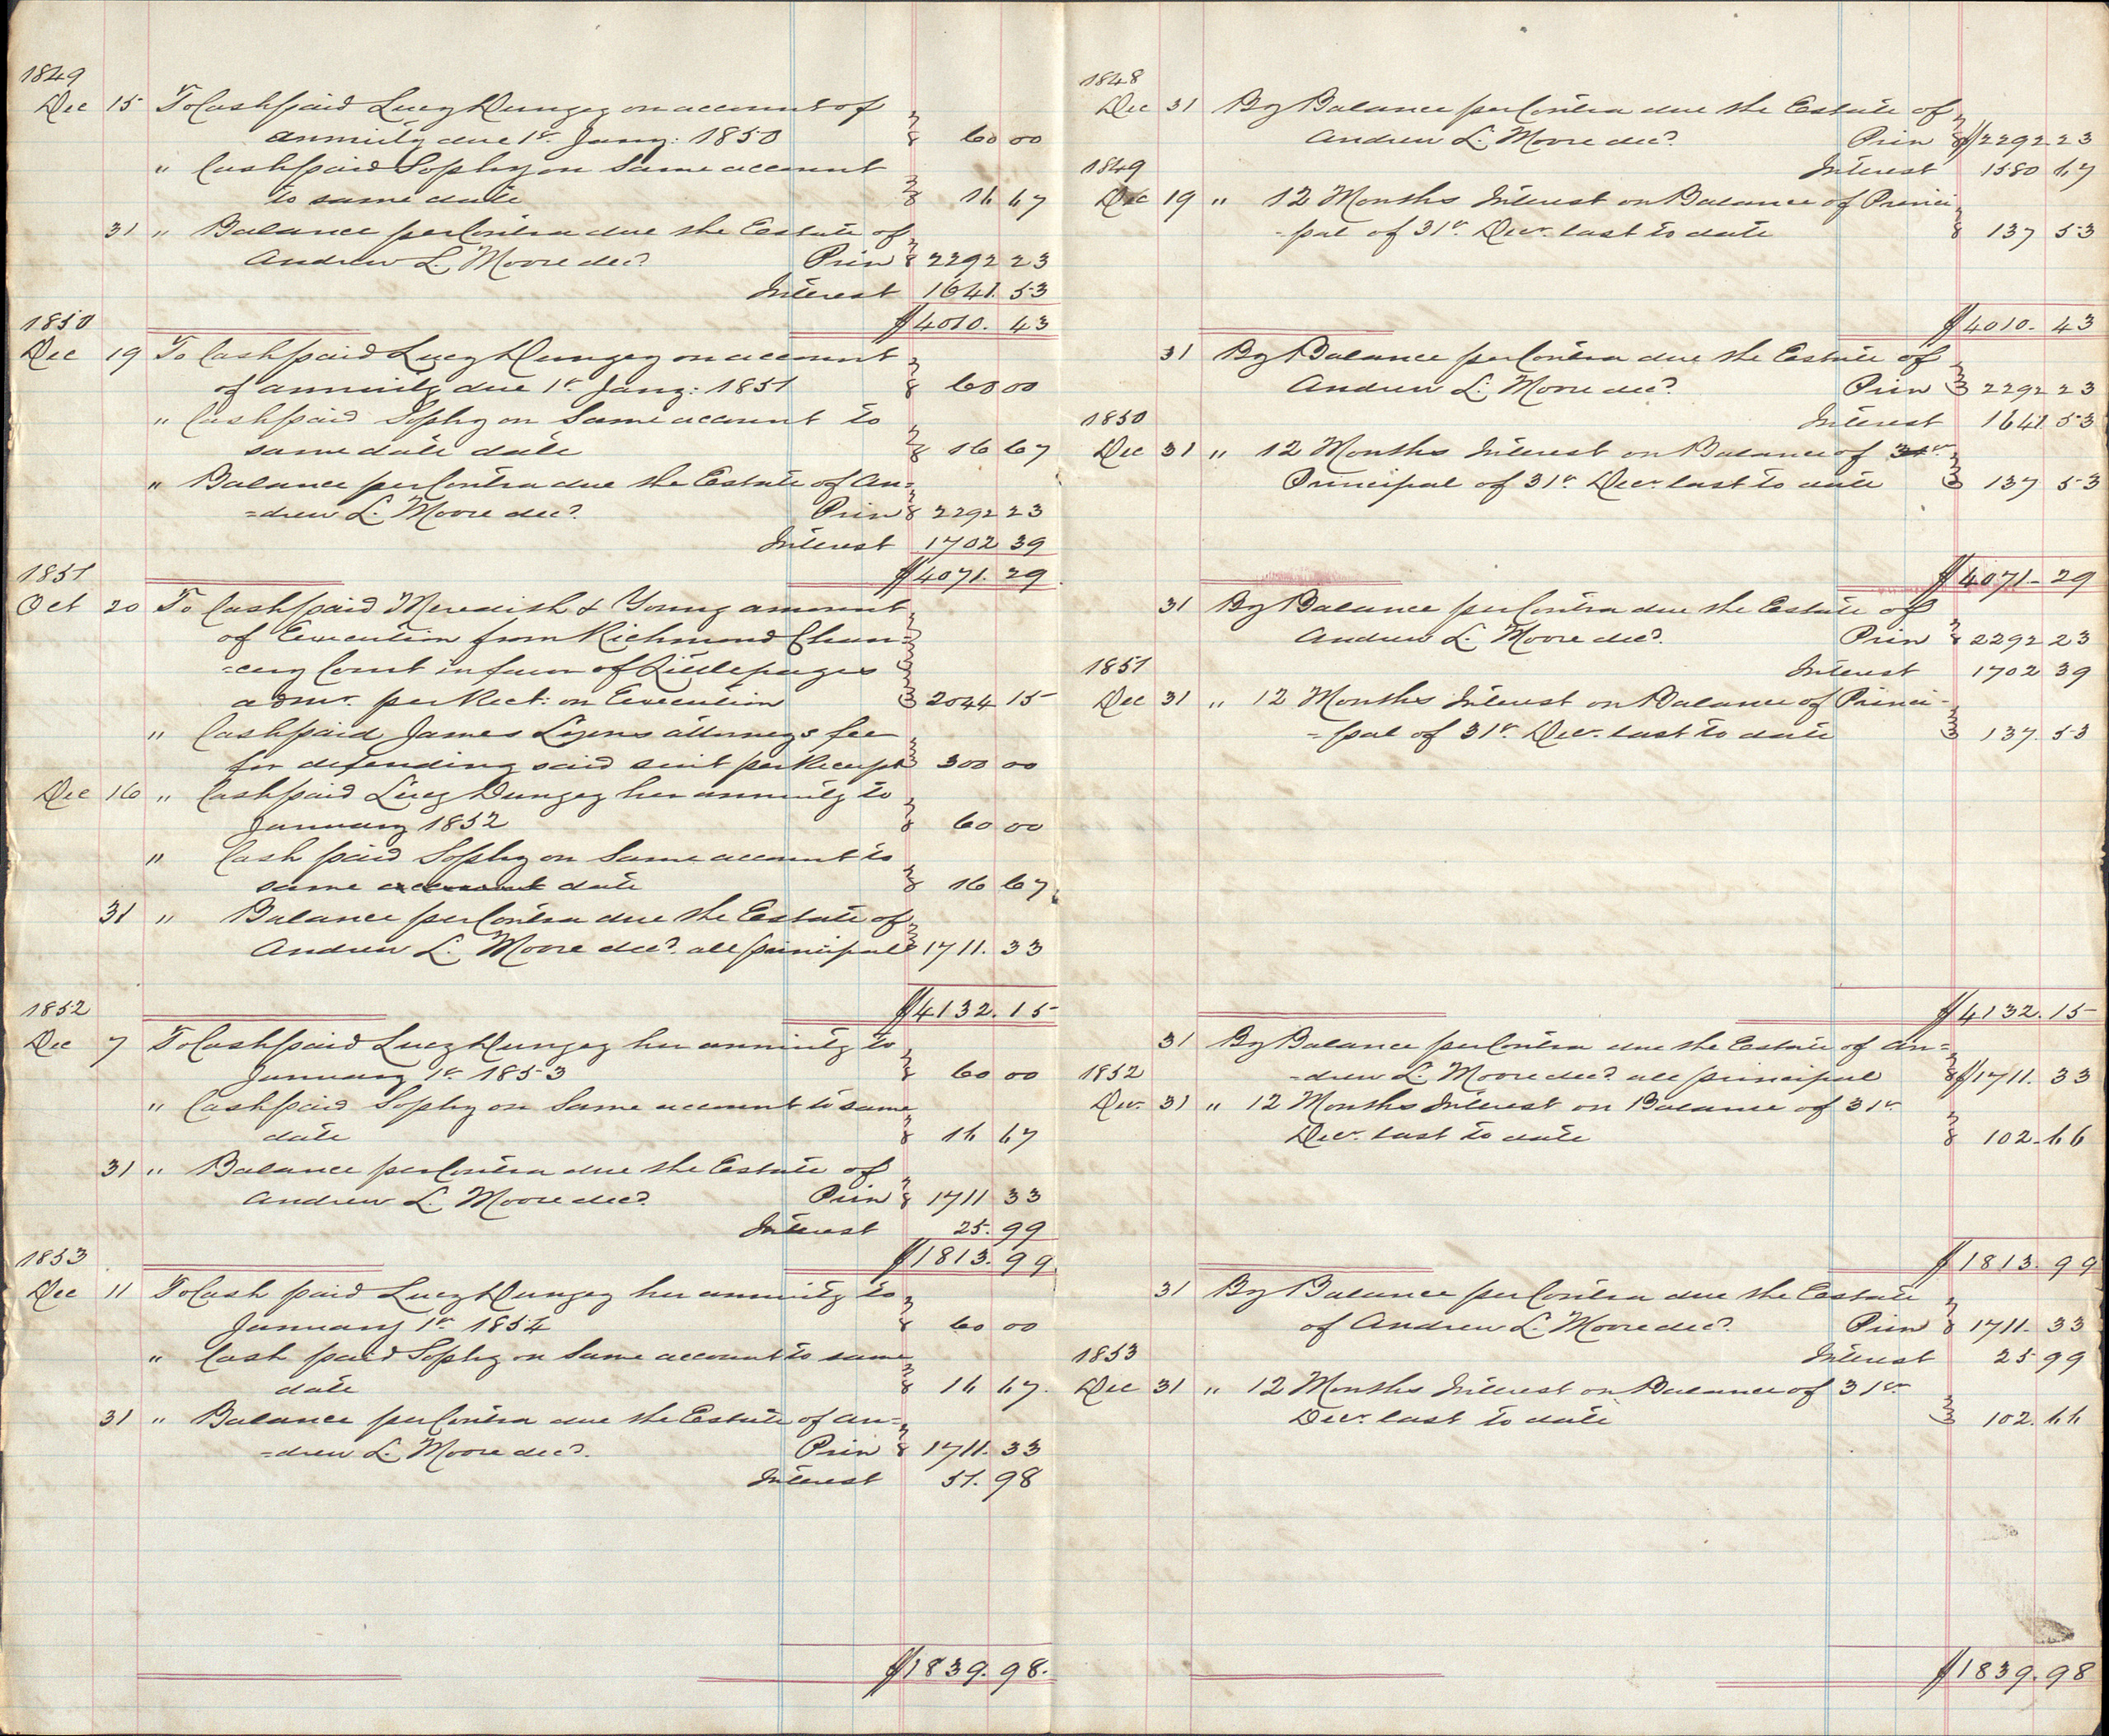 1849
Dec 15 To Cash paid Lucy Dungey on account of
annuity due 1st. Jany: 1850 60 00
" Cash paid Sophy on Same account
to same date 16 67
31 " Balance per Contra due the Estate of
Andrew L. Moore decd. Prin 2292 23
Interest 1641. 53
$4010. 43
1850
Dec 19 To Cash paid Lucy Dungey on account
of annuity due 1st Jany: 1851 60 00
" Cash paid Sophy on Same account to
same date date 16 67
" Balance per Contra due the Estate of An=
=drew L. Moore decd. Prin 2292 23
Interest 1702 39
$4071. 29
1851
Oct 20 To Cash paid Meredith & Young amount
of Execution from Richmond Chan=
=cery Court in favor of Littlepages
admr. per Rect: on Execution 2044 15
" Cash paid James Lyons attorneys fee
for defending said suit per Receipt 300 00
Dec 16 " Cash paid Lucy Dungey her annuity to
January 1852 60 00
" Cash paid Sophy on Same account to
same account date 16 67
31 " Balance per Contra due the Estate of
Andrew L. Moore decd. all principal 1711. 33
$4132. 15
1852
Dec 7 To Cash paid Lucy Dungey her annuity to
January 1st 1853 60 00
" Cash paid Sophy on Same account to same
date 16 67
31 " Balance per Contra due the Estate of
Andrew L. Moore decd. Prin 1711 33
Interest 25. 99
$1813. 99
1853
Dec 11 To Cash paid Lucy Dungey her annuity to
January 1st 1854 60 00
" Cash paid Sophy on Same account to same
date 16 67.
31 " Balance per Contra due the Estate of An=
=drew L. Moore decd. Prin 1711. 33
Interest 51. 98
$1839. 98.
1848
Dec 31 By Balance per Contra due the Estate of
Andrew L. Moore decd. Prin $2292 23
1849 Interest 1580 67
Dec 19 " 12 Months Interest on Balance of Princi
=pal of 31st. Decr. last to date 137 53
$4010. 43
31 By Balance per Contra due the Estate of
Andrew L. Moore decd. Prin 2292 23
1850 Interest 1641 53
Dec 31 " 12 Months Interest on Balance of 31st
Principal of 31st Decr. last to date 137 53
$4071- 29
31 By Balance per Contra due the Estate of
Andrew L. Moore decd. Prin 2292 23
1851 Interest 1702 39
Dec 31 " 12 Months Interest on Balance of Princi-
=pal of 31st. Decr. last to date 137. 53
$4132. 15
31 By Balance per Contra due the Estate of An=
1852 =drew L. Moore decd. all principal $1711. 33
Decr. 31 " 12 Months Interest on Balance of 31st
Decr. last to date 102. 66
$1813. 99
31 By Balance per Contra due the Estate
of Andrew L. Moore decd. Prin 1711. 33
1853 Interest 25 99
Dec 31 " 12 Months Interest on Balance of 31st
Decr. last to date 102. 66
$1839. 98